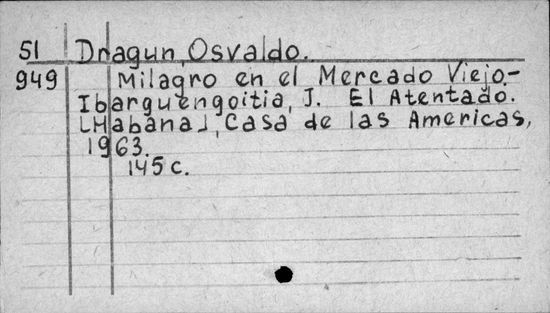 51 Dragun, Osvaldo.
949 Milagro en el Mercado Viejo.-
Ibarguengoitia, J. El Atentado.
[Habana], Casa de las Americas,
1963.
145 c.